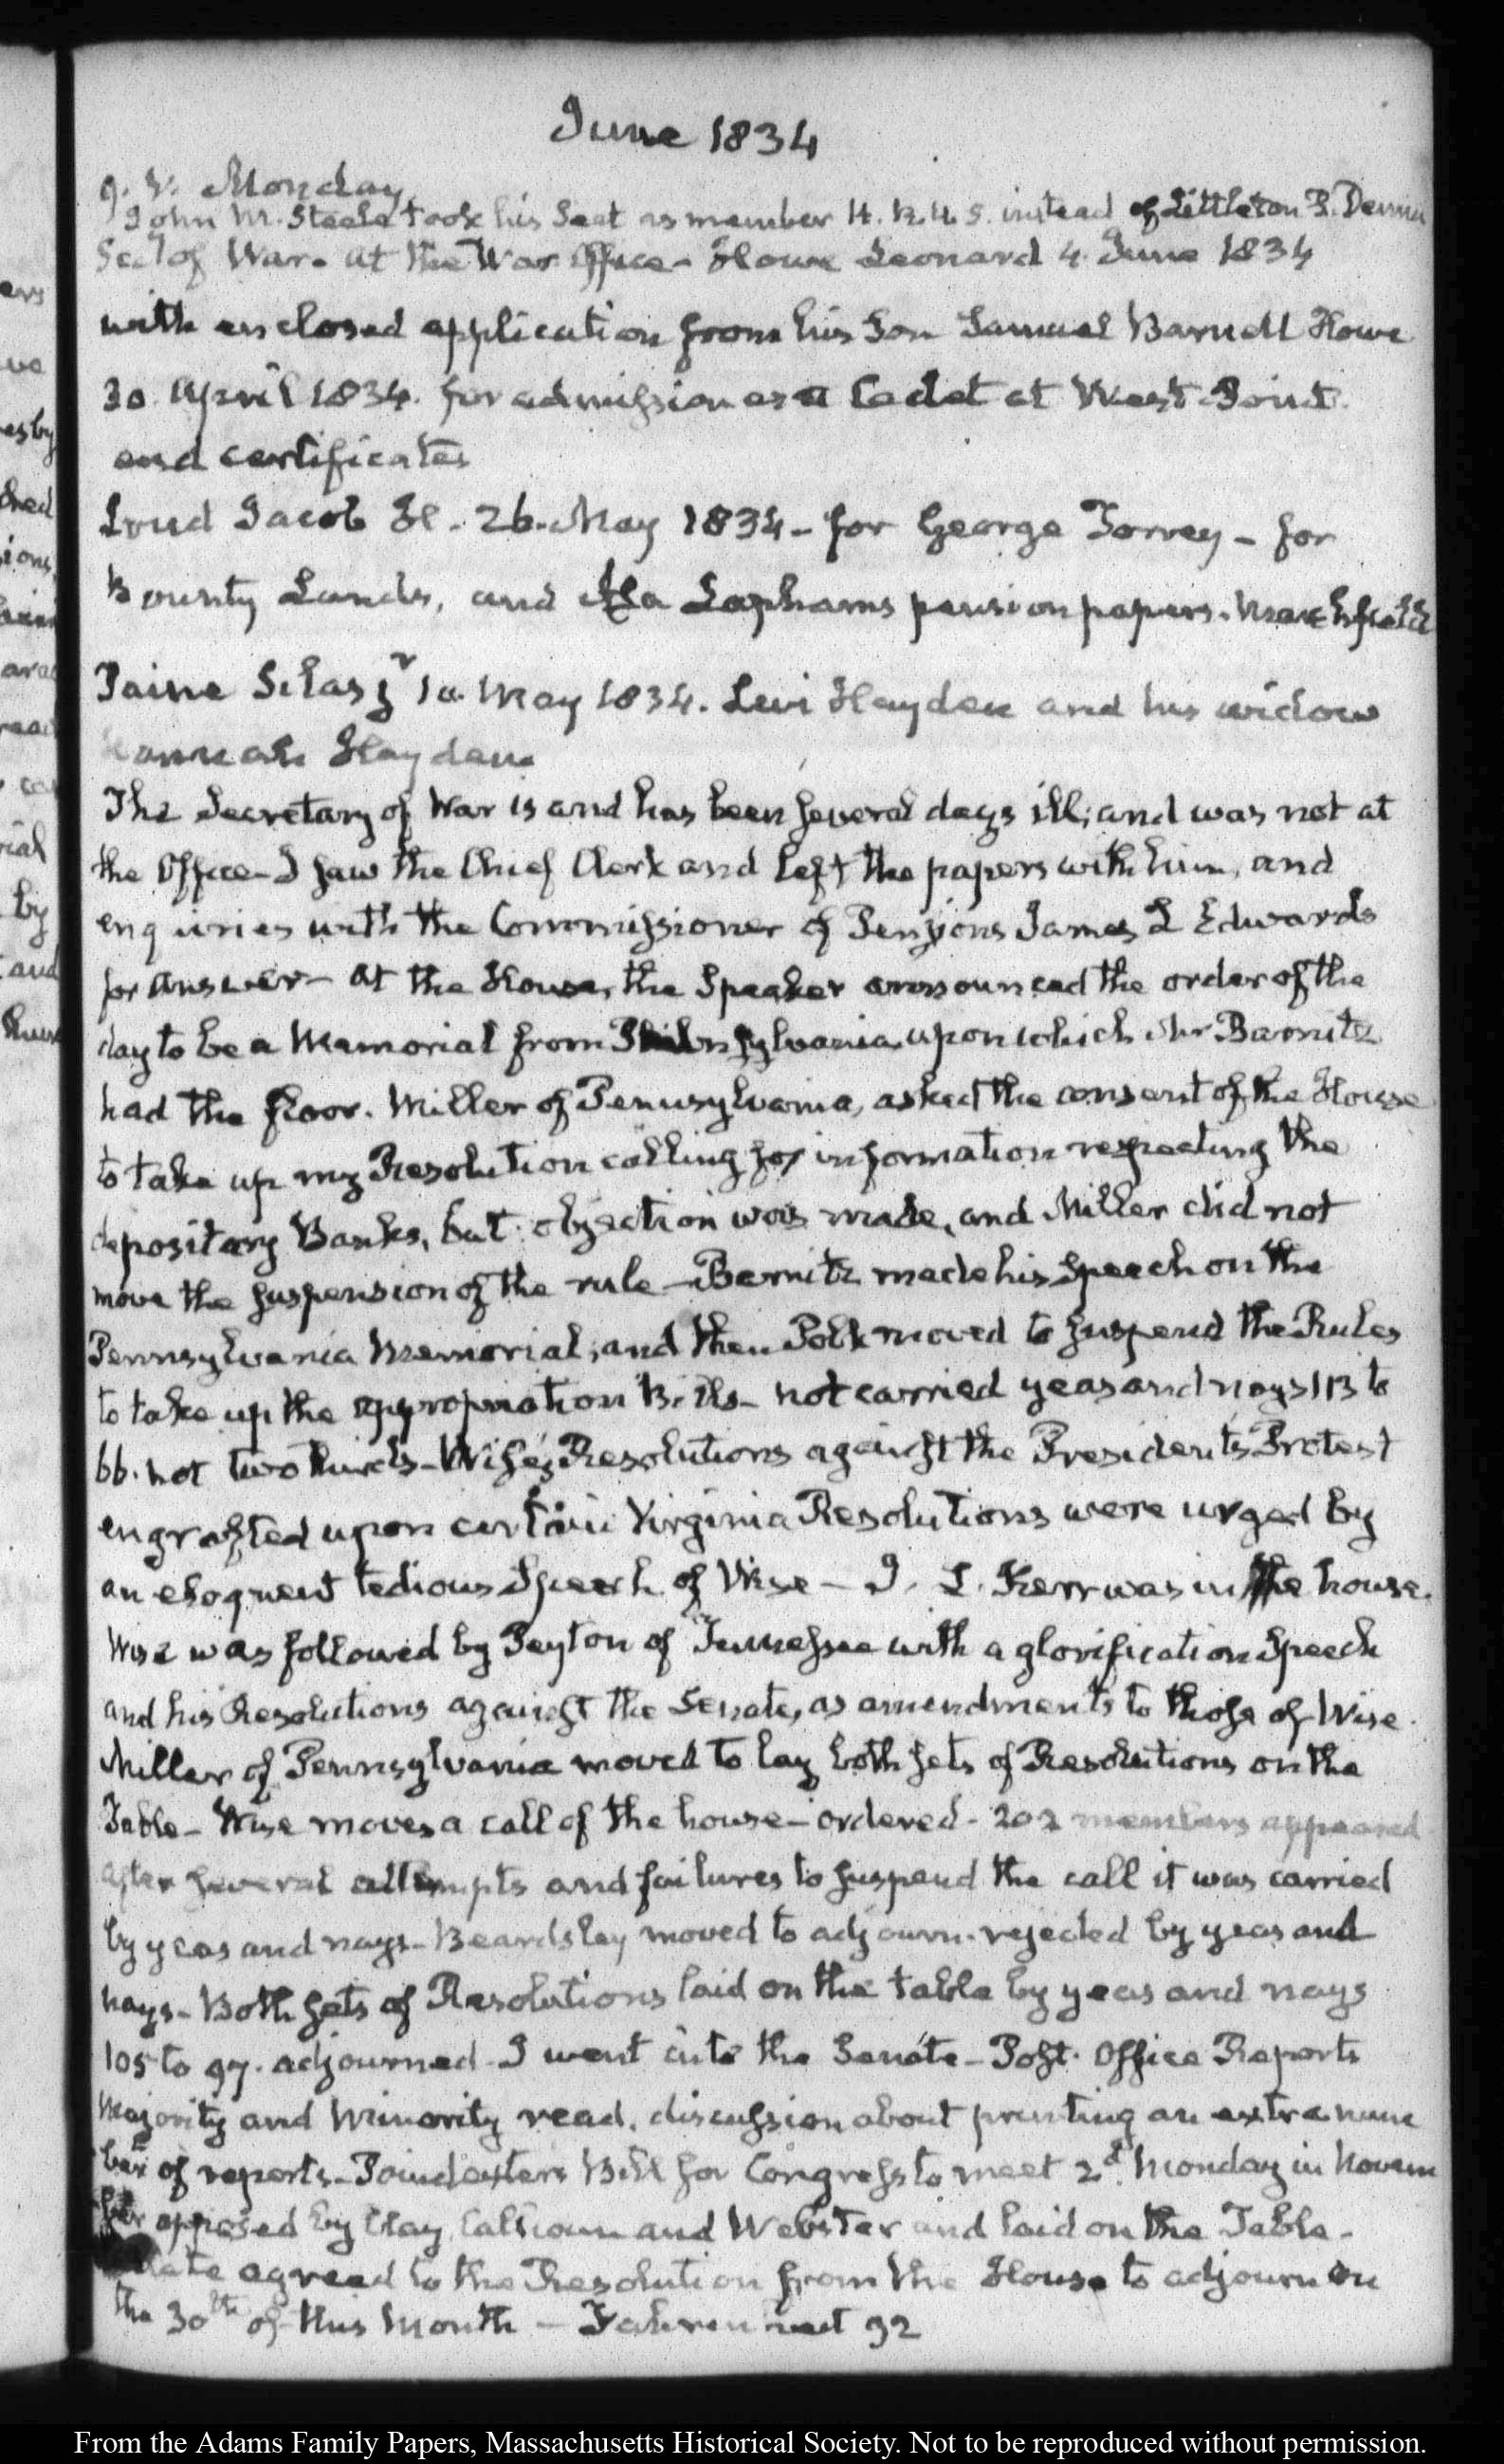 June 1834
9. V. Monday
John N. Steele took his Seat as member H. R. U. S. instead of Littleton P. Dennis
Sec.y of War. at the War Office – Howe Leonard 4. June 1834
with enclosed application from his Son Samuel Howe
30. April 1834. for admission as a Cadet at West-Point.
and certificates
Loud Jacob H. – 26. May 1834 – for George Torrey – for
Bounty Lands, and Lapham's pension papers. Marshfield
Paine Silas jr 10. May 1834. Levi Hayden and his widow
Hannah Hayden.
The Secretary of War is and has been several days ill; and was not at
the Office – I saw the Chief Clerk and left the papers with him, and
enquiries with the Commissioner of Pensions James L Edwards
for answer – at the House, the Speaker announced the order of the
day to be a Memorial from Pennsylvania, upon which Mr Barnitz
had the floor. Miller of Pennsylvania, asked the consent of the House
to take up my Resolution calling for information respecting the
depositary Banks, but objection was made, and Miller did not
move the suspension of the rule – Barnitz made his Speech on the
Pennsylvania Memorial; and then Polk moved to suspend the Rules
to take up the appropriation Bills – not carried yeas and nays 113 to
66. not two thirds – Wise's Resolutions against the President's Protest
engrafted upon certain Virginia Resolutions were urged by
an eloquent tedious Speech of Wise – J. L. Kerr was in the house.
Wise was followed by Peyton of Tennessee with a glorification Speech
and his Resolutions against the Senate, as amendments to those of Wise.
Miller of Pennsylvania moved to lay both sets of Resolutions on the
Table – Wise moves a call of the house – ordered – 202 members appeared
after several attempts and failures to suspend the call it was carried
by yeas and nays – Beardsley moved to adjourn. rejected by yeas and
nays – Both sets of Resolutions laid on the table by yeas and nays
105 to 97. adjourned – I went into the Senate – Post. Office Reports
Majority and Minority read. discussion about printing an extra num
ber of reports – Poindexter's Bill for Congress to meet 2d Monday in Novem
ber opposed by Clay, Calhoun and Webster and laid on the Table –
Senate agreed to the Resolution from the House to adjourn on
the 30th of this Month – Fahrenheit 92
From the Adams Family Papers, Massachusetts Historical Society. Not to be reproduced without permission.